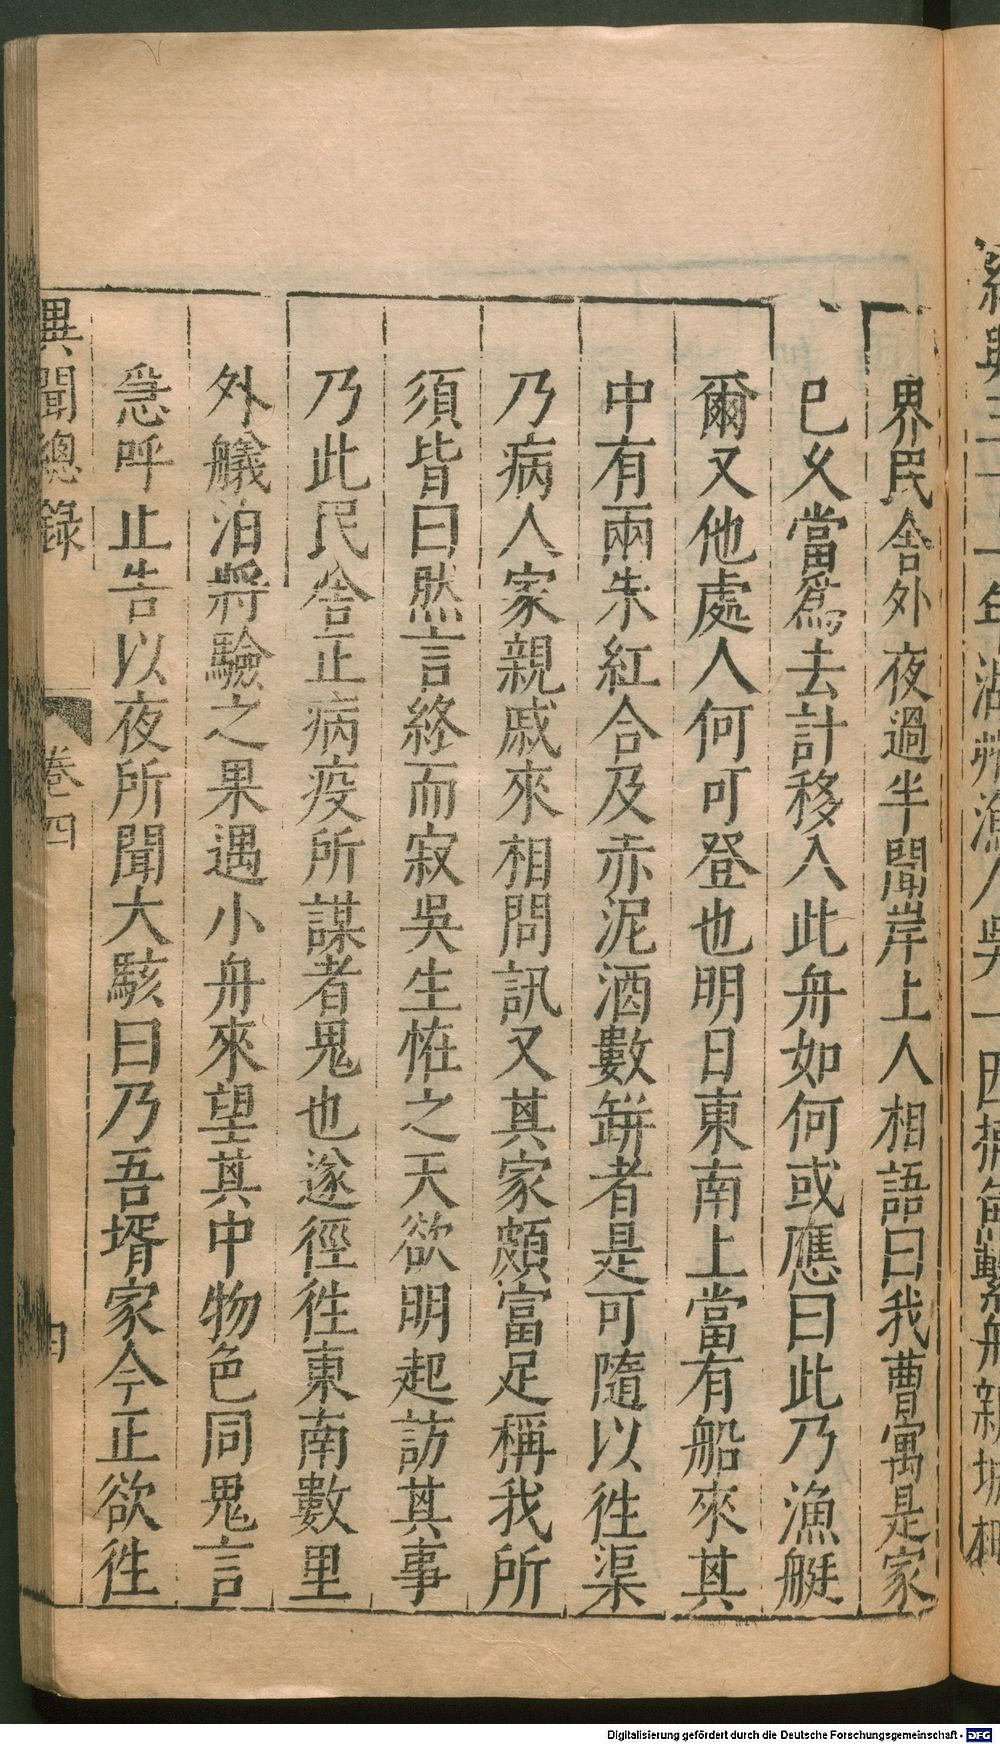 紹興二十二年湖州漁人吳一因捕魚繫舟新城柵
界民舍外夜過半聞岸上人相語曰我曹寓是家
已久當爲去計移入此舟如何或應曰此乃漁艇
爾又他處人何可登也明日東南上當有船來其
中有兩朱紅合及赤泥酒數缾者是可隨以徃渠
乃病人家親戚來相問訊又其家頗富足稱我所
須皆曰然言終而寂吳生恠之天欲明起訪其事
乃此民舍正病疫所謀者鬼也遂徑徃東南數里
外艤泊將驗之果遇小舟來望其中物色同鬼言
急呼止告以夜所聞大駭曰乃吾壻家今正欲徃
異聞總錄
卷四
四
Digitalisierung gefördert durch die Deutsche Forschungsgemeinschaft - DFG